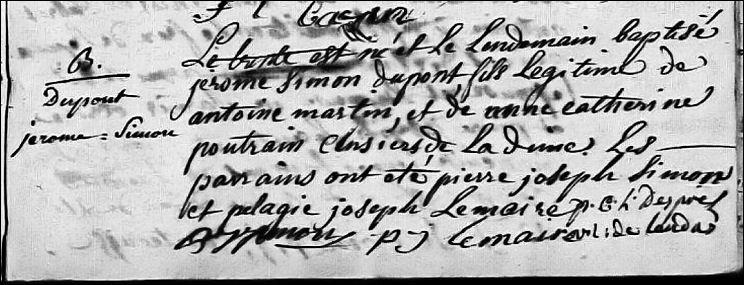 B.
Dupont
jerome = Simon
Le trente est né et le lendemain baptisé
jerome Simon dupont fils legitime de
antoine martin, et de anne catherine
poutrain Censiers de La duine. Les
parrains ont été pierre joseph Simon
et pelagie joseph Lemaire p. Desprès
Simon p j lemaire de landas